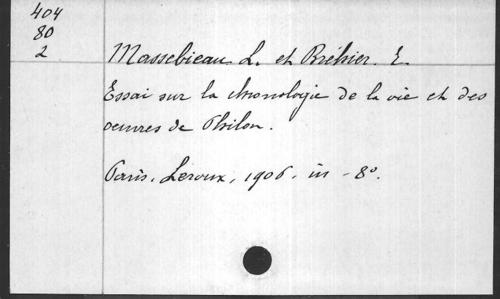 404
80
2
Massebieau. L. et Bréhier. E.
Essai sur la chronologie de la vie et des
oeuvres de Philon.
Paris, Leroux, 1906. in -8°.